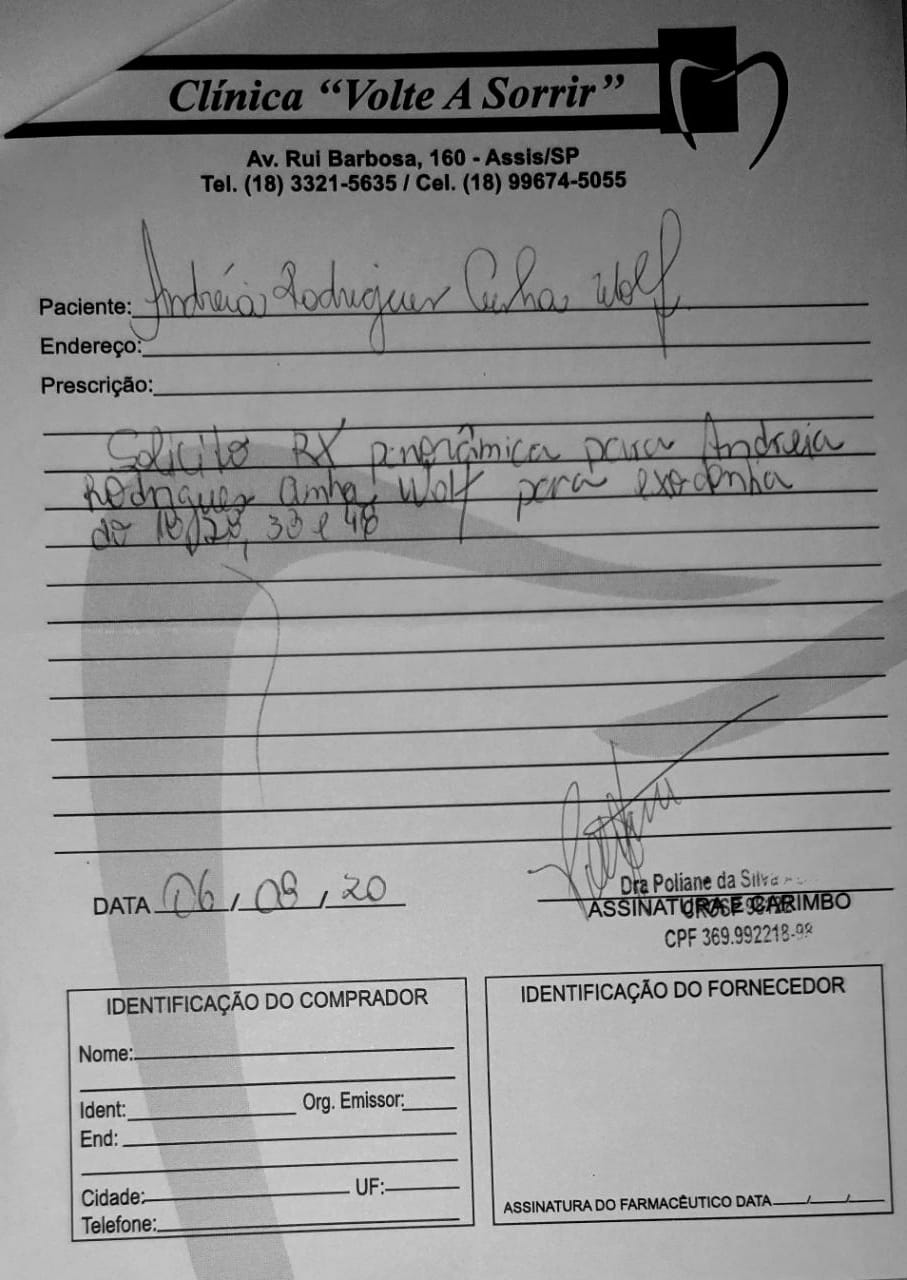 Clínica “Volte A Sorrir”
Av. Rui Barbosa, 160 - Assis/SP
Tel. (18) 3321-5635 / Cel. (18) 99674-5055
Paciente: Andréia Rodrigues Cunha Wolf
Endereço:
Prescrição:
Solicito RX panorâmica para Andreia
Rodrigues Cunha Wolf para exodontia
do 18, 28, 38 e 48
DATA 06 / 08 / 20
Dra Poliane da Silva
ASSINATURA E CARIMBO
CPF 369.992218-98
IDENTIFICAÇÃO DO COMPRADOR
Nome:
Ident: Org. Emissor:
End:
Cidade: UF:
Telefone:
IDENTIFICAÇÃO DO FORNECEDOR
ASSINATURA DO FARMACÊUTICO DATA / /